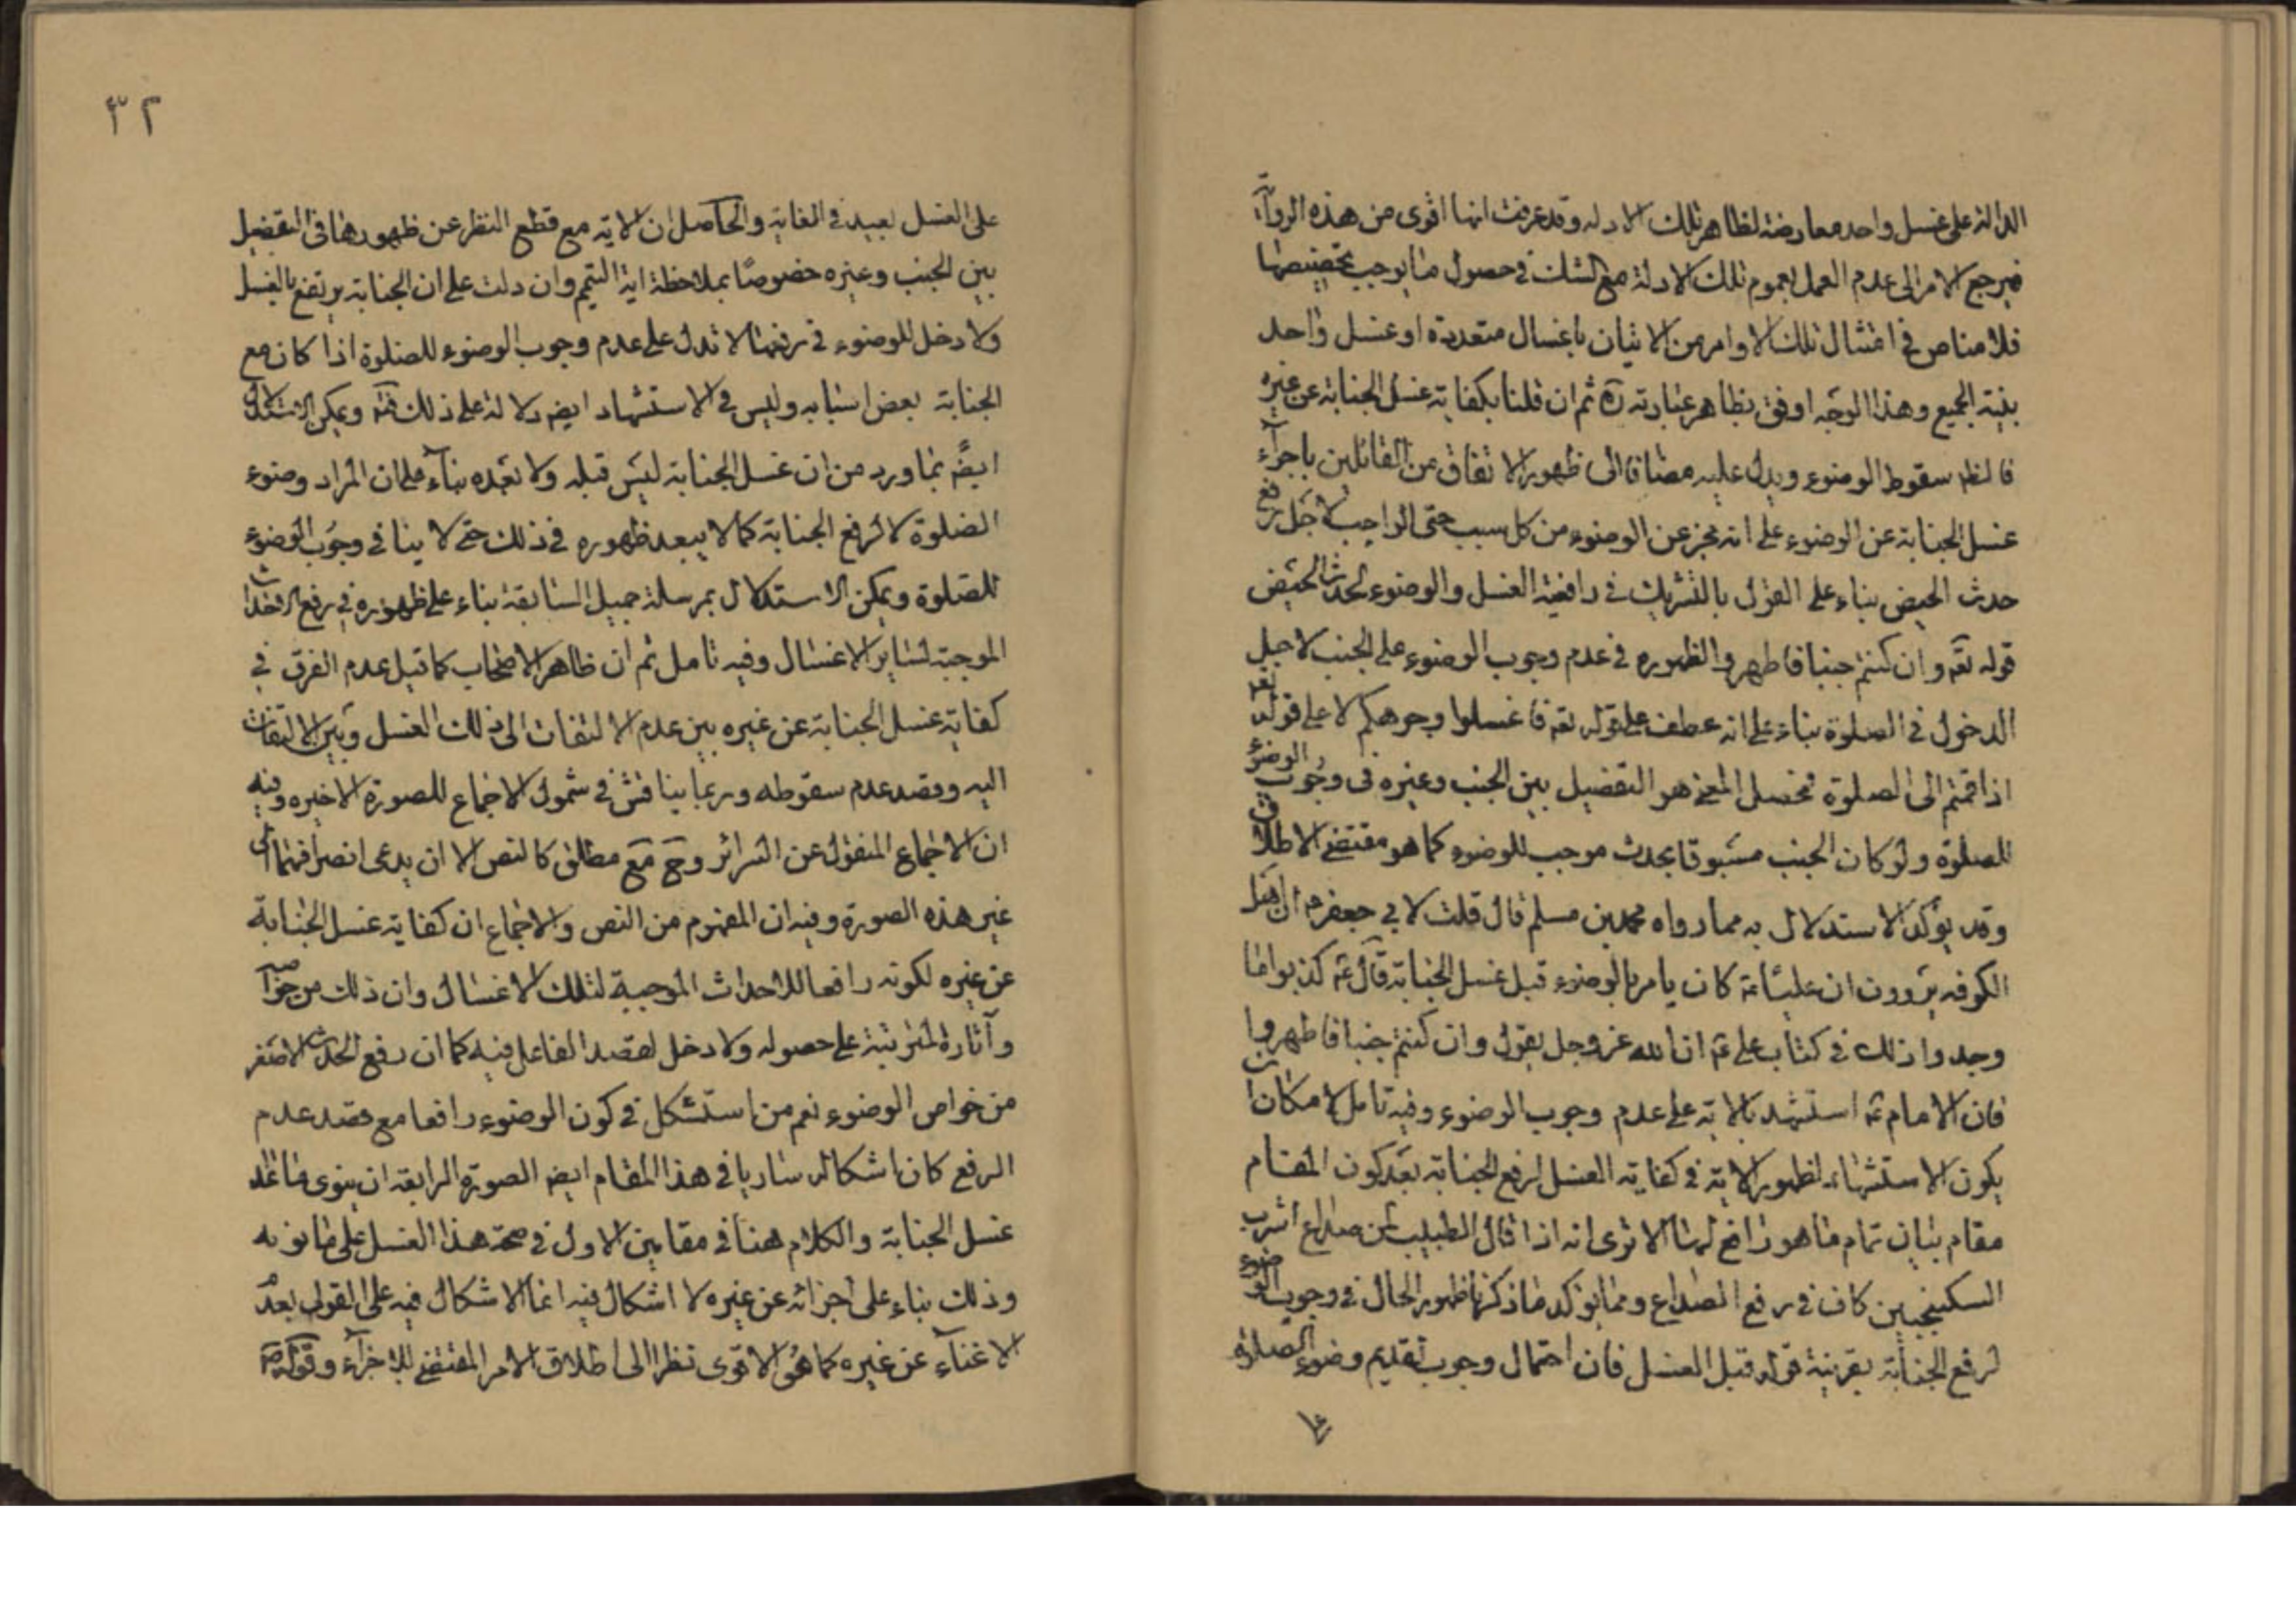 الدالة على غسل واحد معارضة لظاهر تلك الادلة وقد عرفت انها اقوى من هذه الرواية
فيرجع الامر الى عدم العمل بعموم تلك الادلة مع الشك في حصول ما يوجب تخصيصها
فلا مناص في امتثال تلك الاوامر من الاتيان باغسال متعددة او غسل واحد
بنية الجميع وهذا الوجه اوفق بظاهر عبارته ره ثم ان قلنا بكفاية غسل الجنابة عن غيره
فالظ سقوط الوضوء ويدل عليه مضافا الى ظهور الاتفاق من القائلين باجزاء
غسل الجنابة عن الوضوء على انه مجز عن الوضوء من كل سبب حتى الواجب لاجل رفع
حدث الحيض بناء على القول بالتشريك في رافعية الغسل والوضوء لحدث الحيض
قوله تعه وان كنتم جنبا فاطهروا لظهوره في عدم وجوب الوضوء على الجنب لاجل
الدخول في الصلوة بناء على انه عطف على قوله تعه فاغسلوا وجوهكم لا على قوله تعه
اذا قمتم الى الصلوة فمحصل المعنى هو التفصيل بين الجنب وغيره في وجوب الوضوء
للصلوة ولو كان الجنب مسبوقا بحدث موجب للوضوء كما هو مقتضى الاطلاق
وقد يؤكد الاستدلال به مما رواه محمد بن مسلم قال قلت لابي جعفر م ان اهل
الكوفه يروون ان عليا عه كان يامر بالوضوء قبل غسل الجنابة قال عه كذبوا ما
وجدوا ذلك في كتاب على عه ان الله عز وجل يقول وان كنتم جنبا فاطهروا
فان الامام عه استشهد بالاية على عدم وجوب الوضوء وفيه تامل لامكان ان
يكون الاستشهاد لظهور الاية في كفاية الغسل لرفع الجنابة بعد كون المقام
مقام بيان تمام ما هو رافع لها الا ترى انه اذا قال الطبيب لمن صدع اشرب
السكنجبين كاف في رفع الصداع ومما يؤكد ما ذكرنا ظهور الحال في وجوب الوضوء
لرفع الجنابة بقرينة قوله قبل الغسل فان احتمال وجوب تقديم وضوء الصلوة
على
٣٢
على الغسل بعيد في الغاية والحاصل ان الاية مع قطع النظر عن ظهورها في التفصيل
بين الجنب وغيره خصوصا بملاحظة اية التيمم وان دلت على ان الجنابة يرتفع بالغسل
ولا دخل للوضوء في رفعها لا تدل على عدم وجوب الوضوء للصلوة اذا كان مع
الجنابة بعض اسبابه وليس في الاستشهاد ايضه دلالة على ذلك فتم ويمكن الاستدلال
ايضا بما ورد من ان غسل الجنابة ليس قبله ولا بعده بناء على ان المراد وضوء
الصلوة لا لرفع الجنابة كما لا يبعد ظهوره في ذلك حتى لا ينافي وجوب الوضوء
للصلوة ويمكن الاستدلال بمرسلة جميل السابقة بناء على ظهوره في رفع الاحداث
الموجبة لساير الاغسال وفيه تامل ثم ان ظاهر الاصحاب كما قيل عدم الفرق في
كفاية غسل الجنابة عن غيره بين عدم الالتفات الى ذلك الغسل وبين الالتفات
اليه وقصد عدم سقوطه وربما يناقش في شمول الاجماع للصورة الاخيره وفيه
ان الاجماع المنقول عن السرائر وجع مع مطلق كالنص الا ان يدعى انصرافهما الى
غير هذه الصورة وفيه ان المفهوم من النص والاجماع ان كفاية غسل الجنابة
عن غيره لكونه رافعا للاحداث الموجبة لتلك الاغسال وان ذلك من خواصه
وآثاره المترتبة على حصوله ولا دخل لقصد الفاعل فيه كما ان رفع الحدث الاصغر
من خواص الوضوء نعم من استشكل في كون الوضوء رافعا مع قصد عدم
الرفع كان اشكاله ساريا في هذا المقام ايضه الصورة الرابعه ان ينوى ما عدا
غسل الجنابة والكلام هنا في مقامين الاول في صحة هذا الغسل على ما نوى له
وذلك بناء على اجزائه عن غيره لا اشكال فيه انما الاشكال فيه على القول بعدم
الاغناء عن غيره كما هو الاقوى نظرا الى اطلاق الامر المقتضى للاجزاء وقوله عه